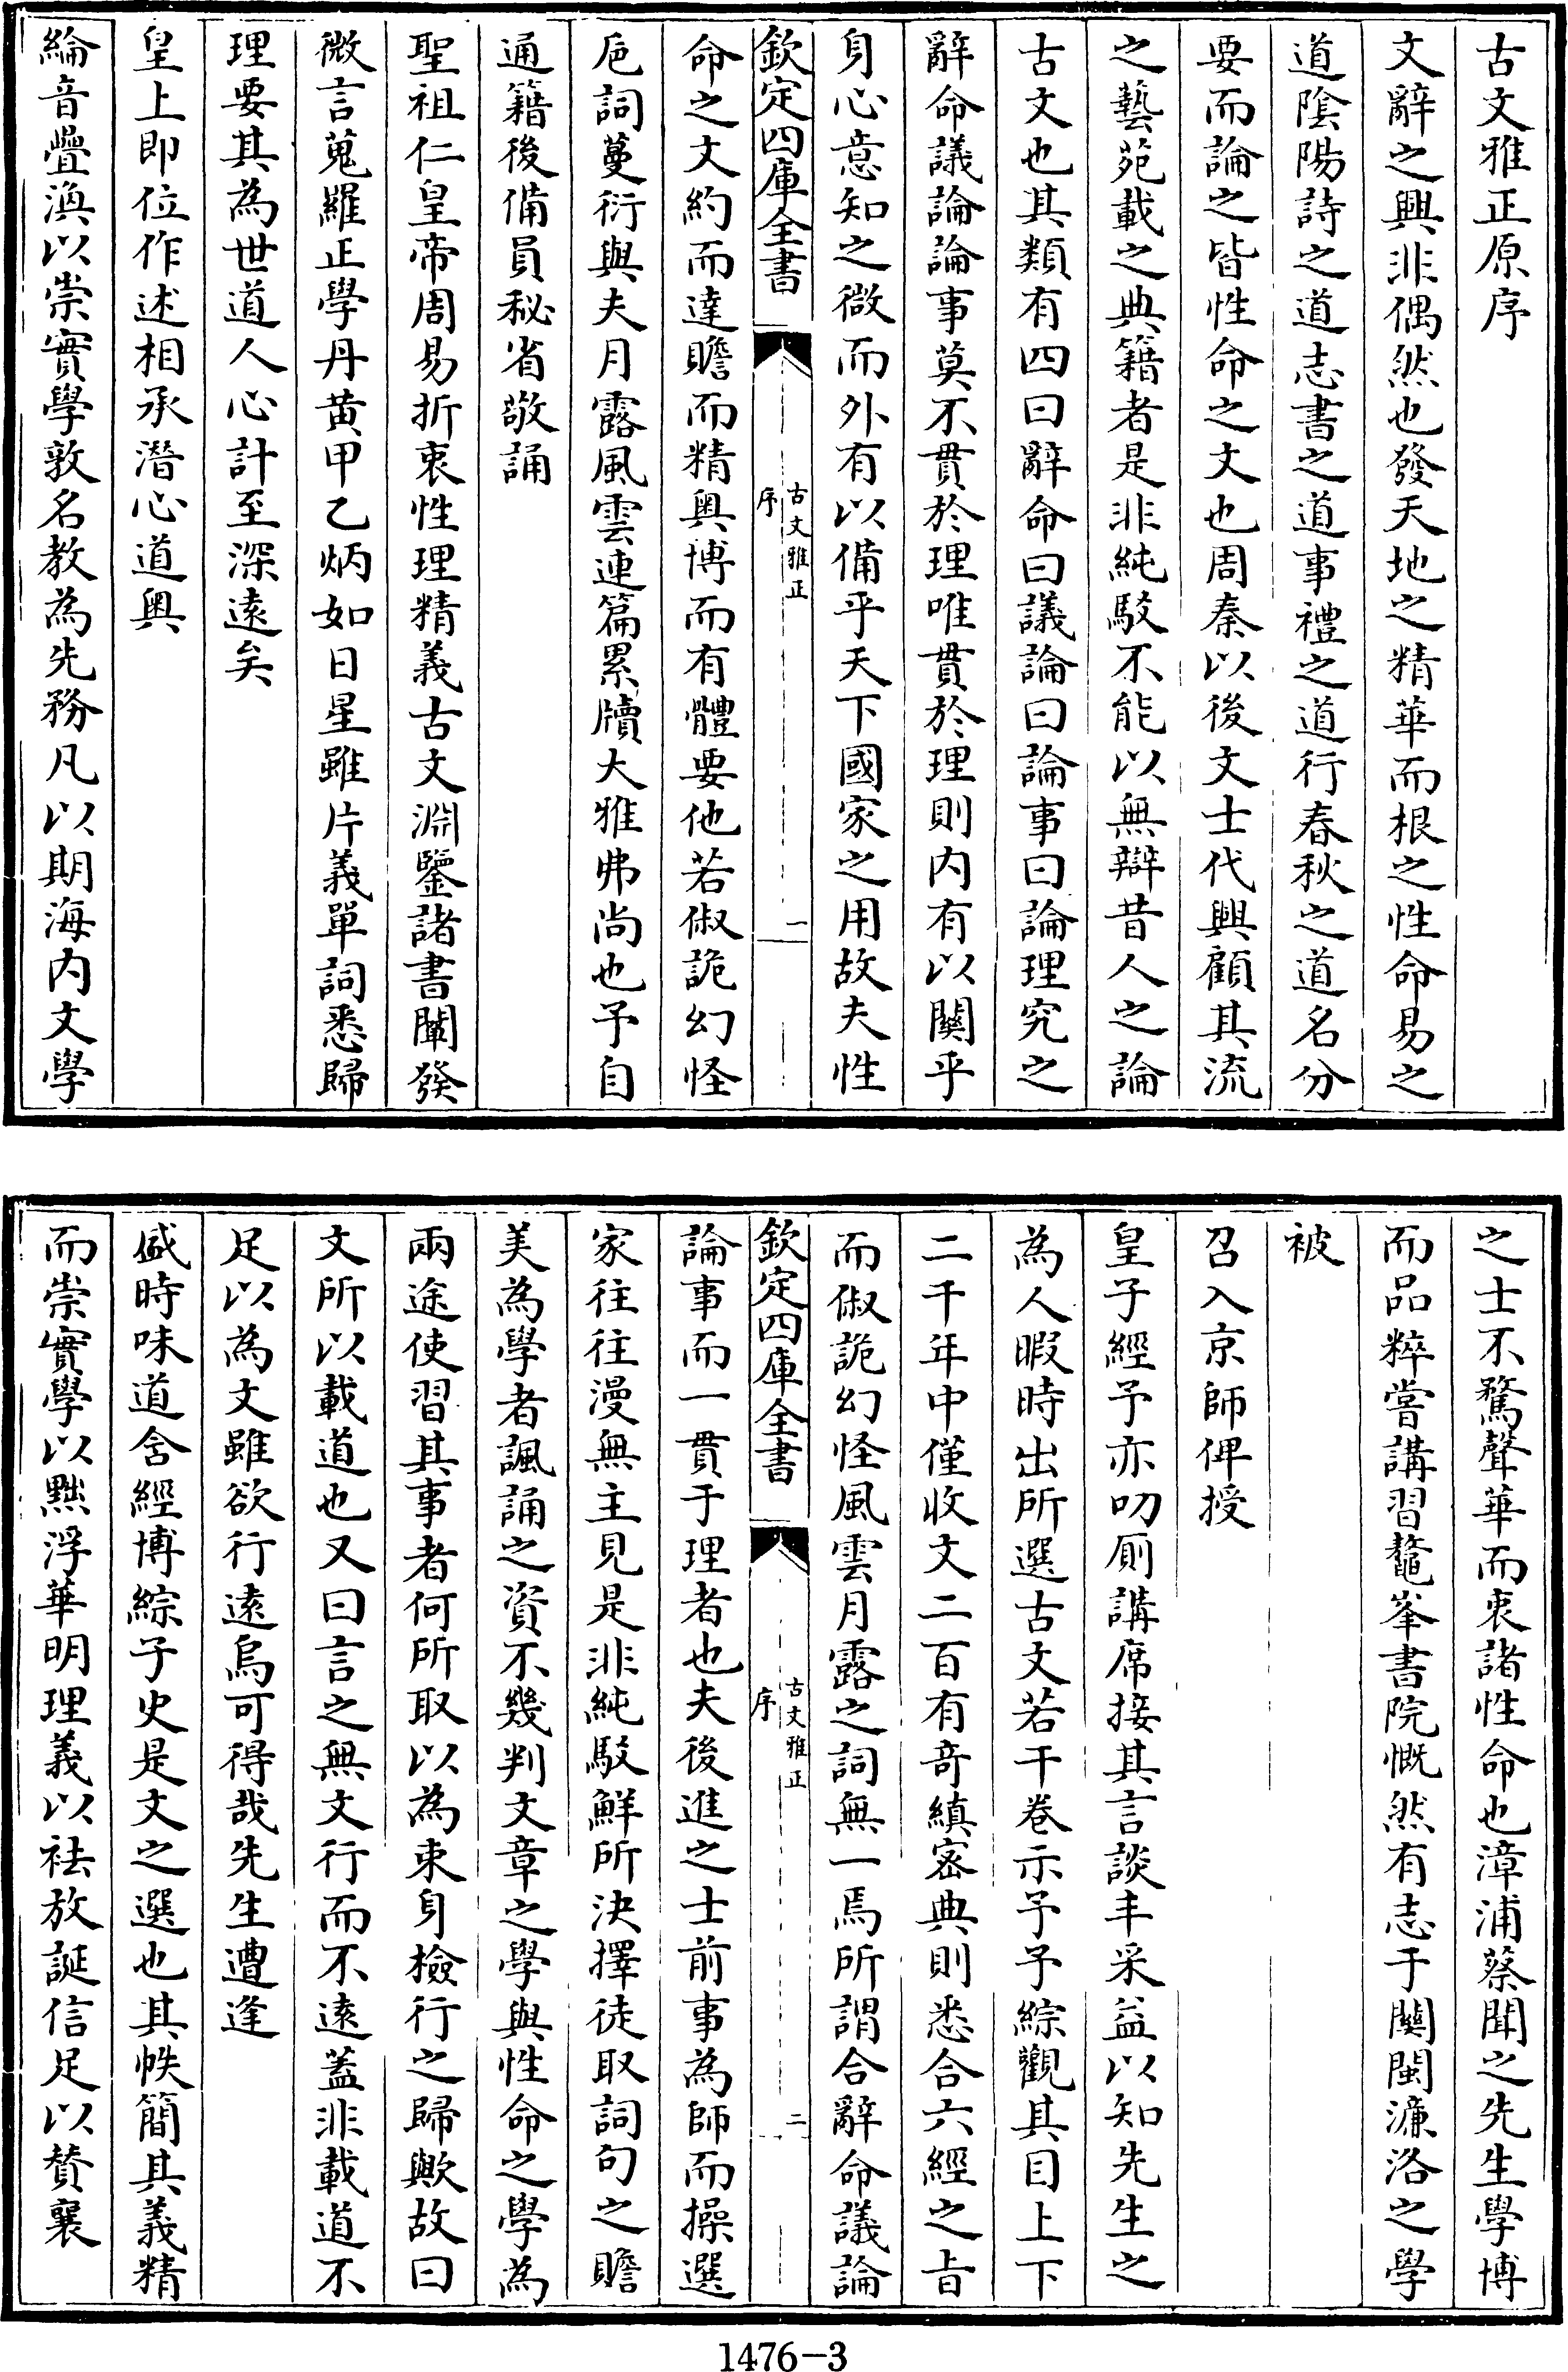 古文雅正原序
文辭之興非偶然也發天地之精華而根之性命易之
道陰陽詩之道志書之道事禮之道行春秋之道名分
要而論之皆性命之文也周秦以後文士代興顧其流
之藝苑載之典籍者是非純駁不能以無辯昔人之論
古文也其類有四曰辭命曰議論曰論事曰論理究之
辭命議論論事莫不貫於理唯貫於理則内有以關乎
身心意知之微而外有以備乎天下國家之用故夫性
欽定四庫全書
古文雅正
序
一
命之文約而達贍而精奥博而有體要他若俶詭幻怪
巵詞蔓衍與夫月露風雲連篇累牘大雅弗尚也予自
通籍後備員秘省敬誦
聖祖仁皇帝周易折衷性理精義古文淵鑒諸書闡發
微言蒐羅正學丹黄甲乙炳如日星雖片義單詞悉歸
理要其為世道人心計至深遠矣
皇上即位作述相承潛心道奥
綸音疊渙以崇實學敦名教為先務凡以期海内文學
之士不騖聲華而衷諸性命也漳浦蔡聞之先生學博
而品粹嘗講習鼇峯書院慨然有志于關閩濂洛之學
被
召入京師俾授
皇子經予亦叨厠講席接其言談丰采益以知先生之
為人暇時出所選古文若干卷示予予綜觀其目上下
二千年中僅收文二百有竒縝密典則悉合六經之旨
而俶詭幻怪風雲月露之詞無一焉所謂合辭命議論
欽定四庫全書
古文雅正
序
二
論事而一貫于理者也夫後進之士前事為師而操選
家往往漫無主見是非純駁鮮所決擇徒取詞句之贍
美為學者諷誦之資不幾判文章之學與性命之學為
兩途使習其事者何所取以為束身檢行之歸歟故曰
文所以載道也又曰言之無文行而不遠蓋非載道不
足以為文雖欲行遠烏可得哉先生遭逢
盛時味道含經博綜子史是文之選也其帙簡其義精
而崇實學以黜浮華明理義以祛放誕信足以賛襄
1476-3